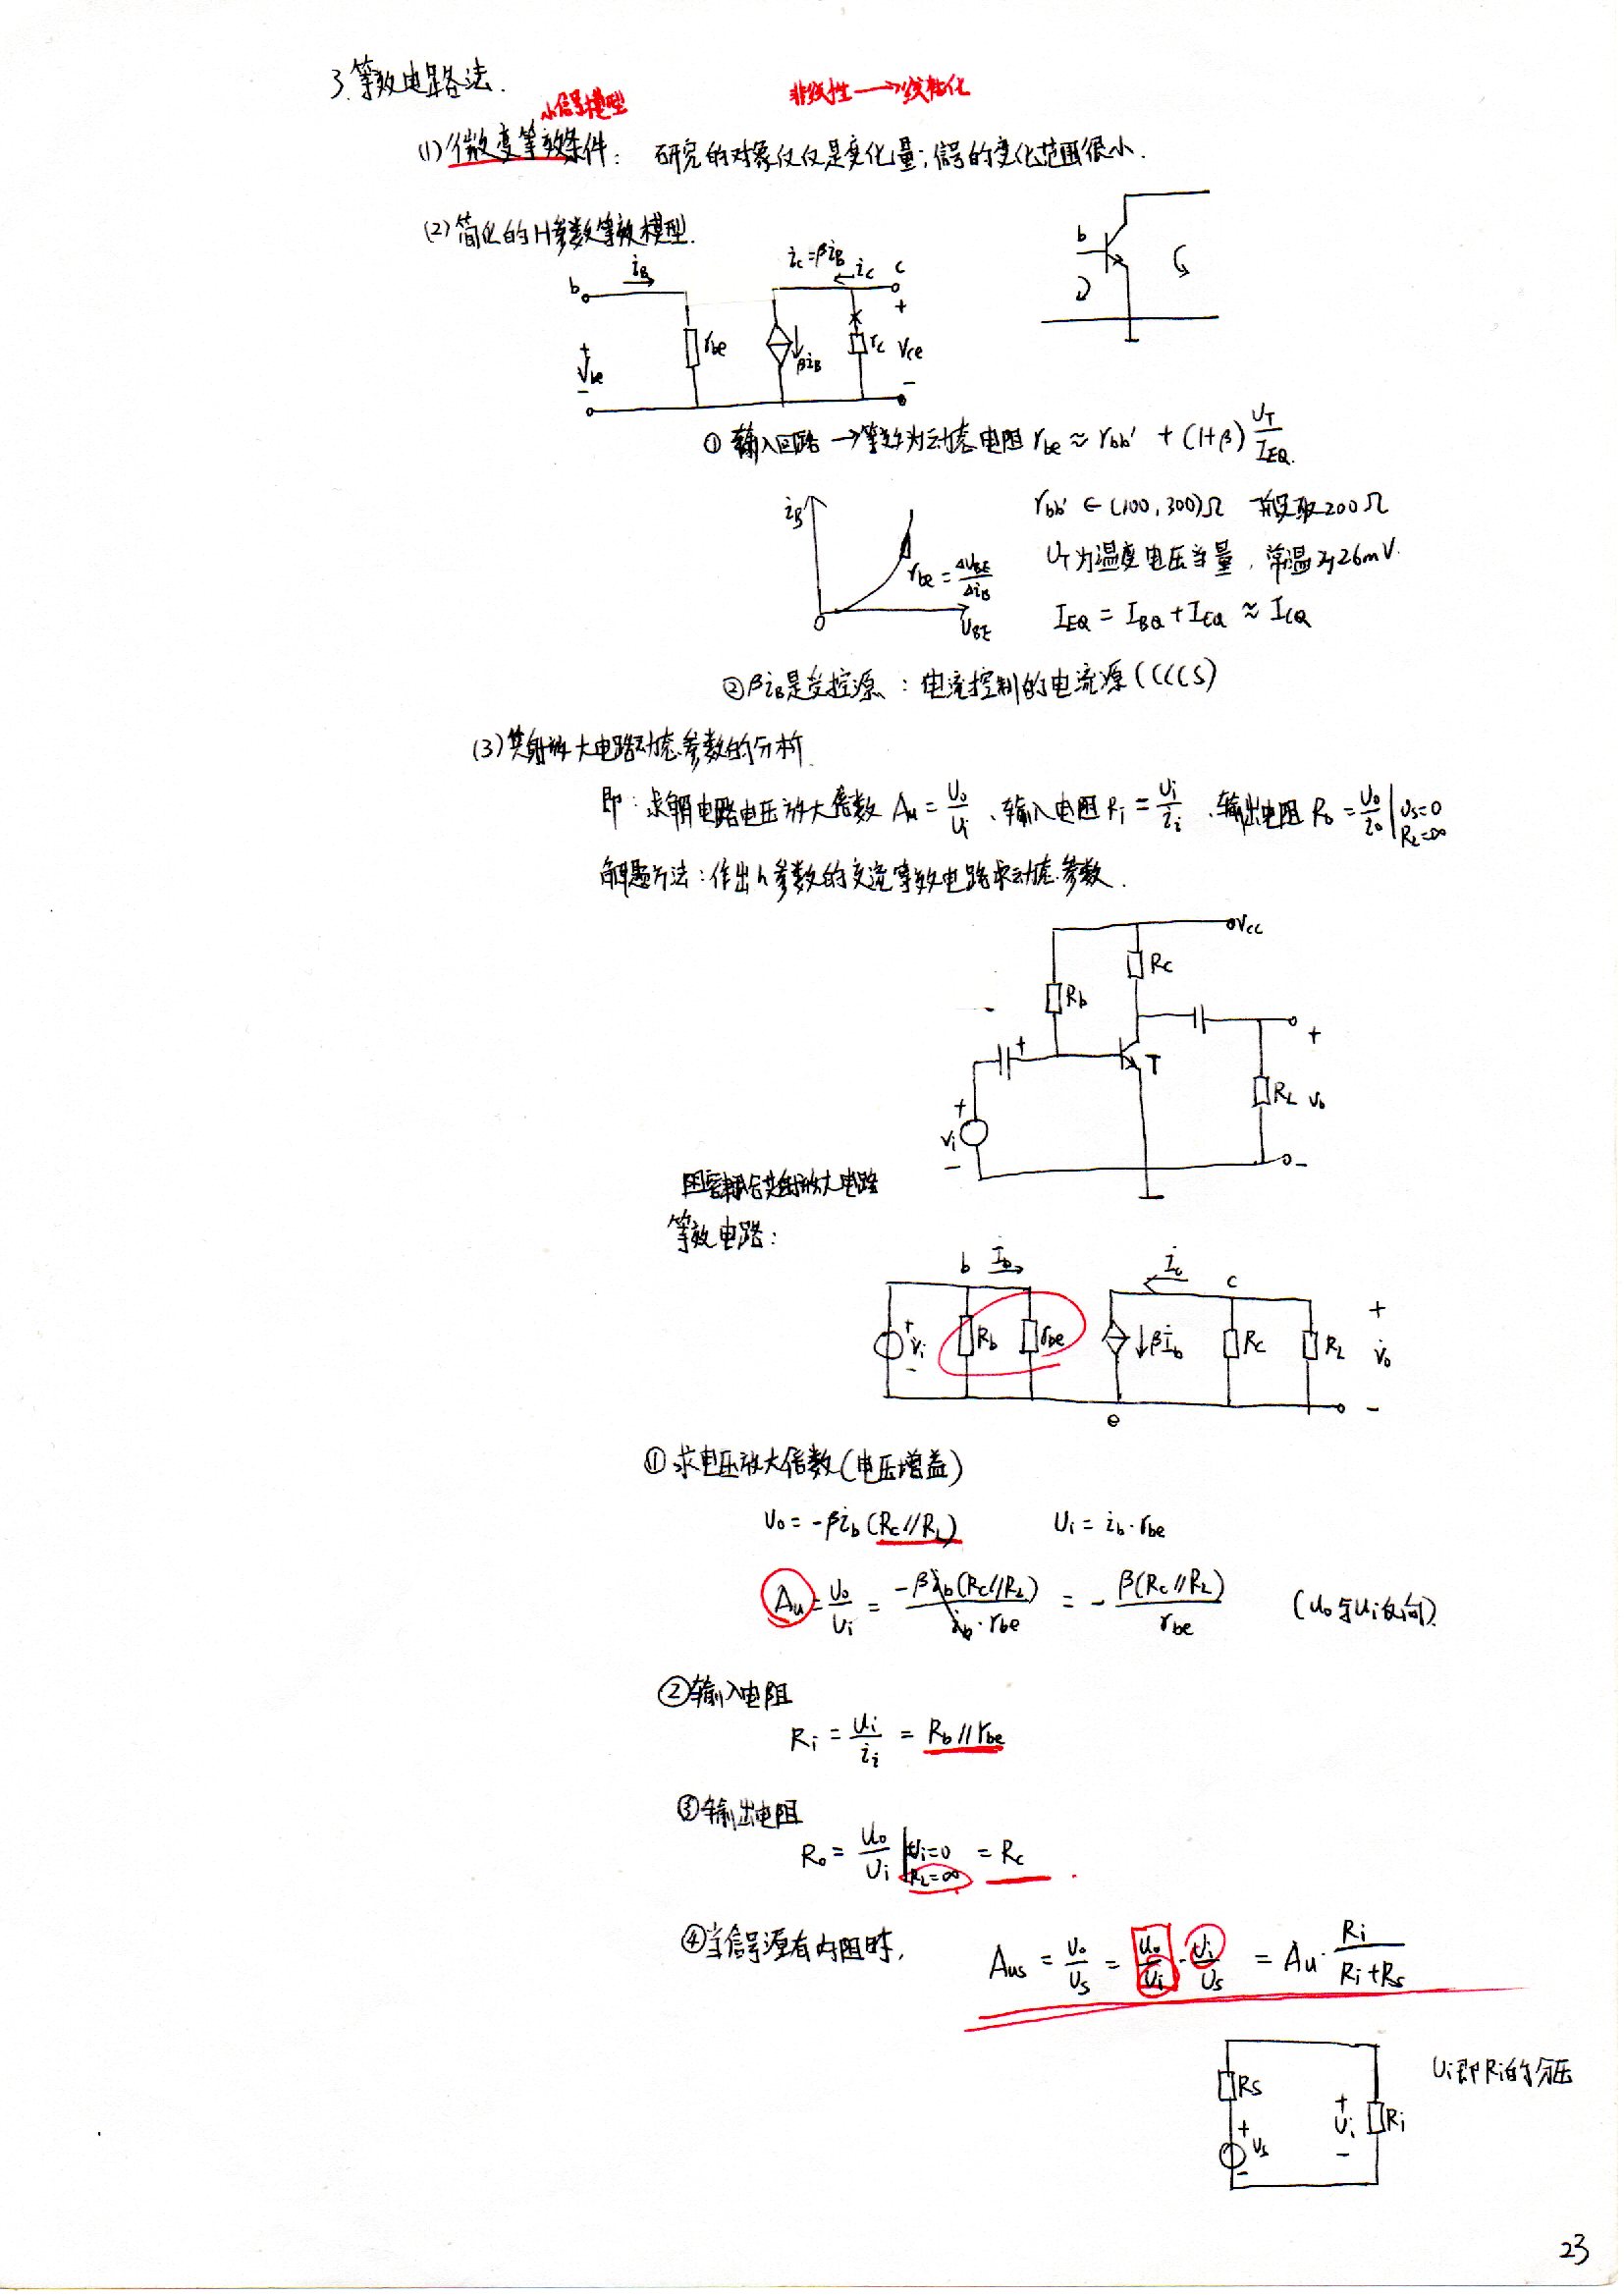 3.等效电路法.
小信号模型
非线性→线性化
(1)微变等效条件: 研究的对象仅仅是变化量;信号的变化范围很小.
(2)简化的H参数等效模型.
b iB iC=βiB iC c
+ Vbe - rbe βiB rc + Vce -
b
① 输入回路→等效为动态电阻 rbe ≈ rbb' + (1+β) UT/IEQ.
iB O UBE rbe = ΔUBE/ΔiB
rbb' ∈ (100,300)Ω 一般取200Ω
UT为温度电压当量, 常温为26mV.
IEQ = IBQ + ICQ ≈ ICQ
②βiB是受控源: 电流控制的电流源(CCCS)
(3)共射放大电路动态参数的分析
即:求解电路电压放大倍数 Au = Uo/Ui 、输入电阻 Ri = Ui/ii 、输出电阻 Ro = Uo/io | Us=0 RL=∞
解题方法:作出h参数的交流等效电路求动态参数.
VCC
Rb Rc
+ T
+ Vi - RL + Vo -
阻容耦合共射放大电路
等效电路:
b İb İc c
+ V̇i - Rb rbe βİb Rc RL + V̇o -
e
①求电压放大倍数(电压增益)
Uo = -βib(Rc//RL) Ui = ib·rbe
Au = Uo/Ui = -βib(Rc//RL)/ib·rbe = - β(Rc//RL)/rbe (Uo与Ui反向)
②输入电阻
Ri = Ui/ii = Rb//rbe
③输出电阻
Ro = Uo/Ui | Ui=0 RL=∞ = Rc
④当信号源有内阻时,
Aus = Uo/Us = Uo/Ui · Ui/Us = Au· Ri/Ri+Rs
Rs + Us - + Ui - Ri
Ui即Ri的分压
23